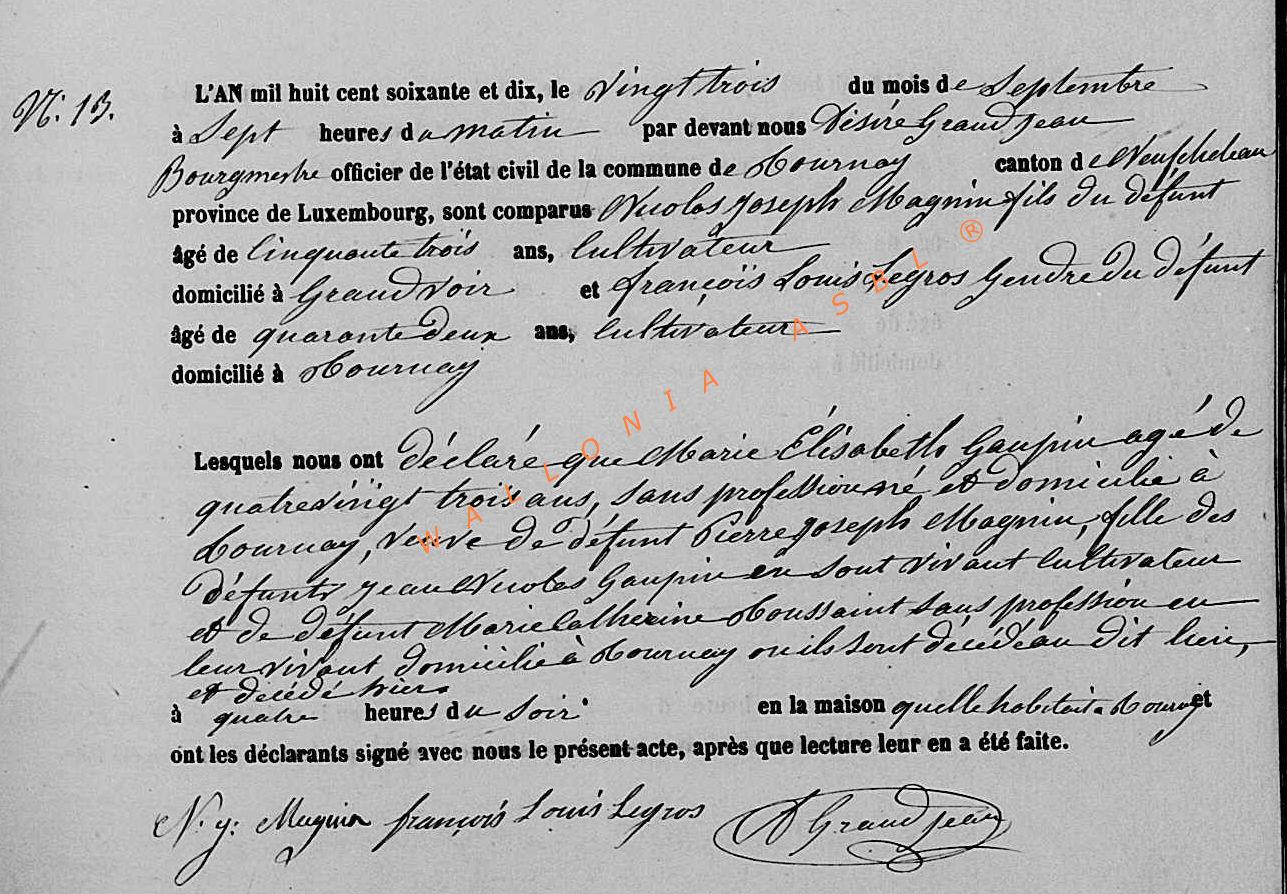 N. 13.
L'AN mil huit cent soixante et dix, le vingt trois du mois de Septembre
à Sept heures du matin par devant nous Désiré Grand jean
Bourgmestre officier de l'état civil de la commune de Tournay canton de Neufchateau
province de Luxembourg, sont comparus Nicolas joseph Magnin fils du défunt
âgé de Cinquante trois ans, Cultivateur
domicilié à Grandvoir et françois Louis Legros Gendre du défunt
âgé de quarante deux ans, Cultivateur
domicilié à Tournay
Lesquels nous ont déclaré que Marie Élisabeth Gaupin agé de
quatrevingt trois ans, sans profession né et domicilié à
Tournay, veuve de défunt Pierre joseph Magnin, fille des
défunts jean Nicolas Gaupin en sont vivant Cultivateur
et de défunt Marie Catherine Toussaint sans profession en
leur vivant domicilié à Tournay ou ils sont décédé au dit lieu,
et décédé hier
à quatre heures du soir en la maison quelle habitait a Tournay et
ont les déclarants signé avec nous le présent acte, après que lecture leur en a été faite.
N. j: Magnin françois Louis Legros D Grand jean
WALLONIA ASBL ®